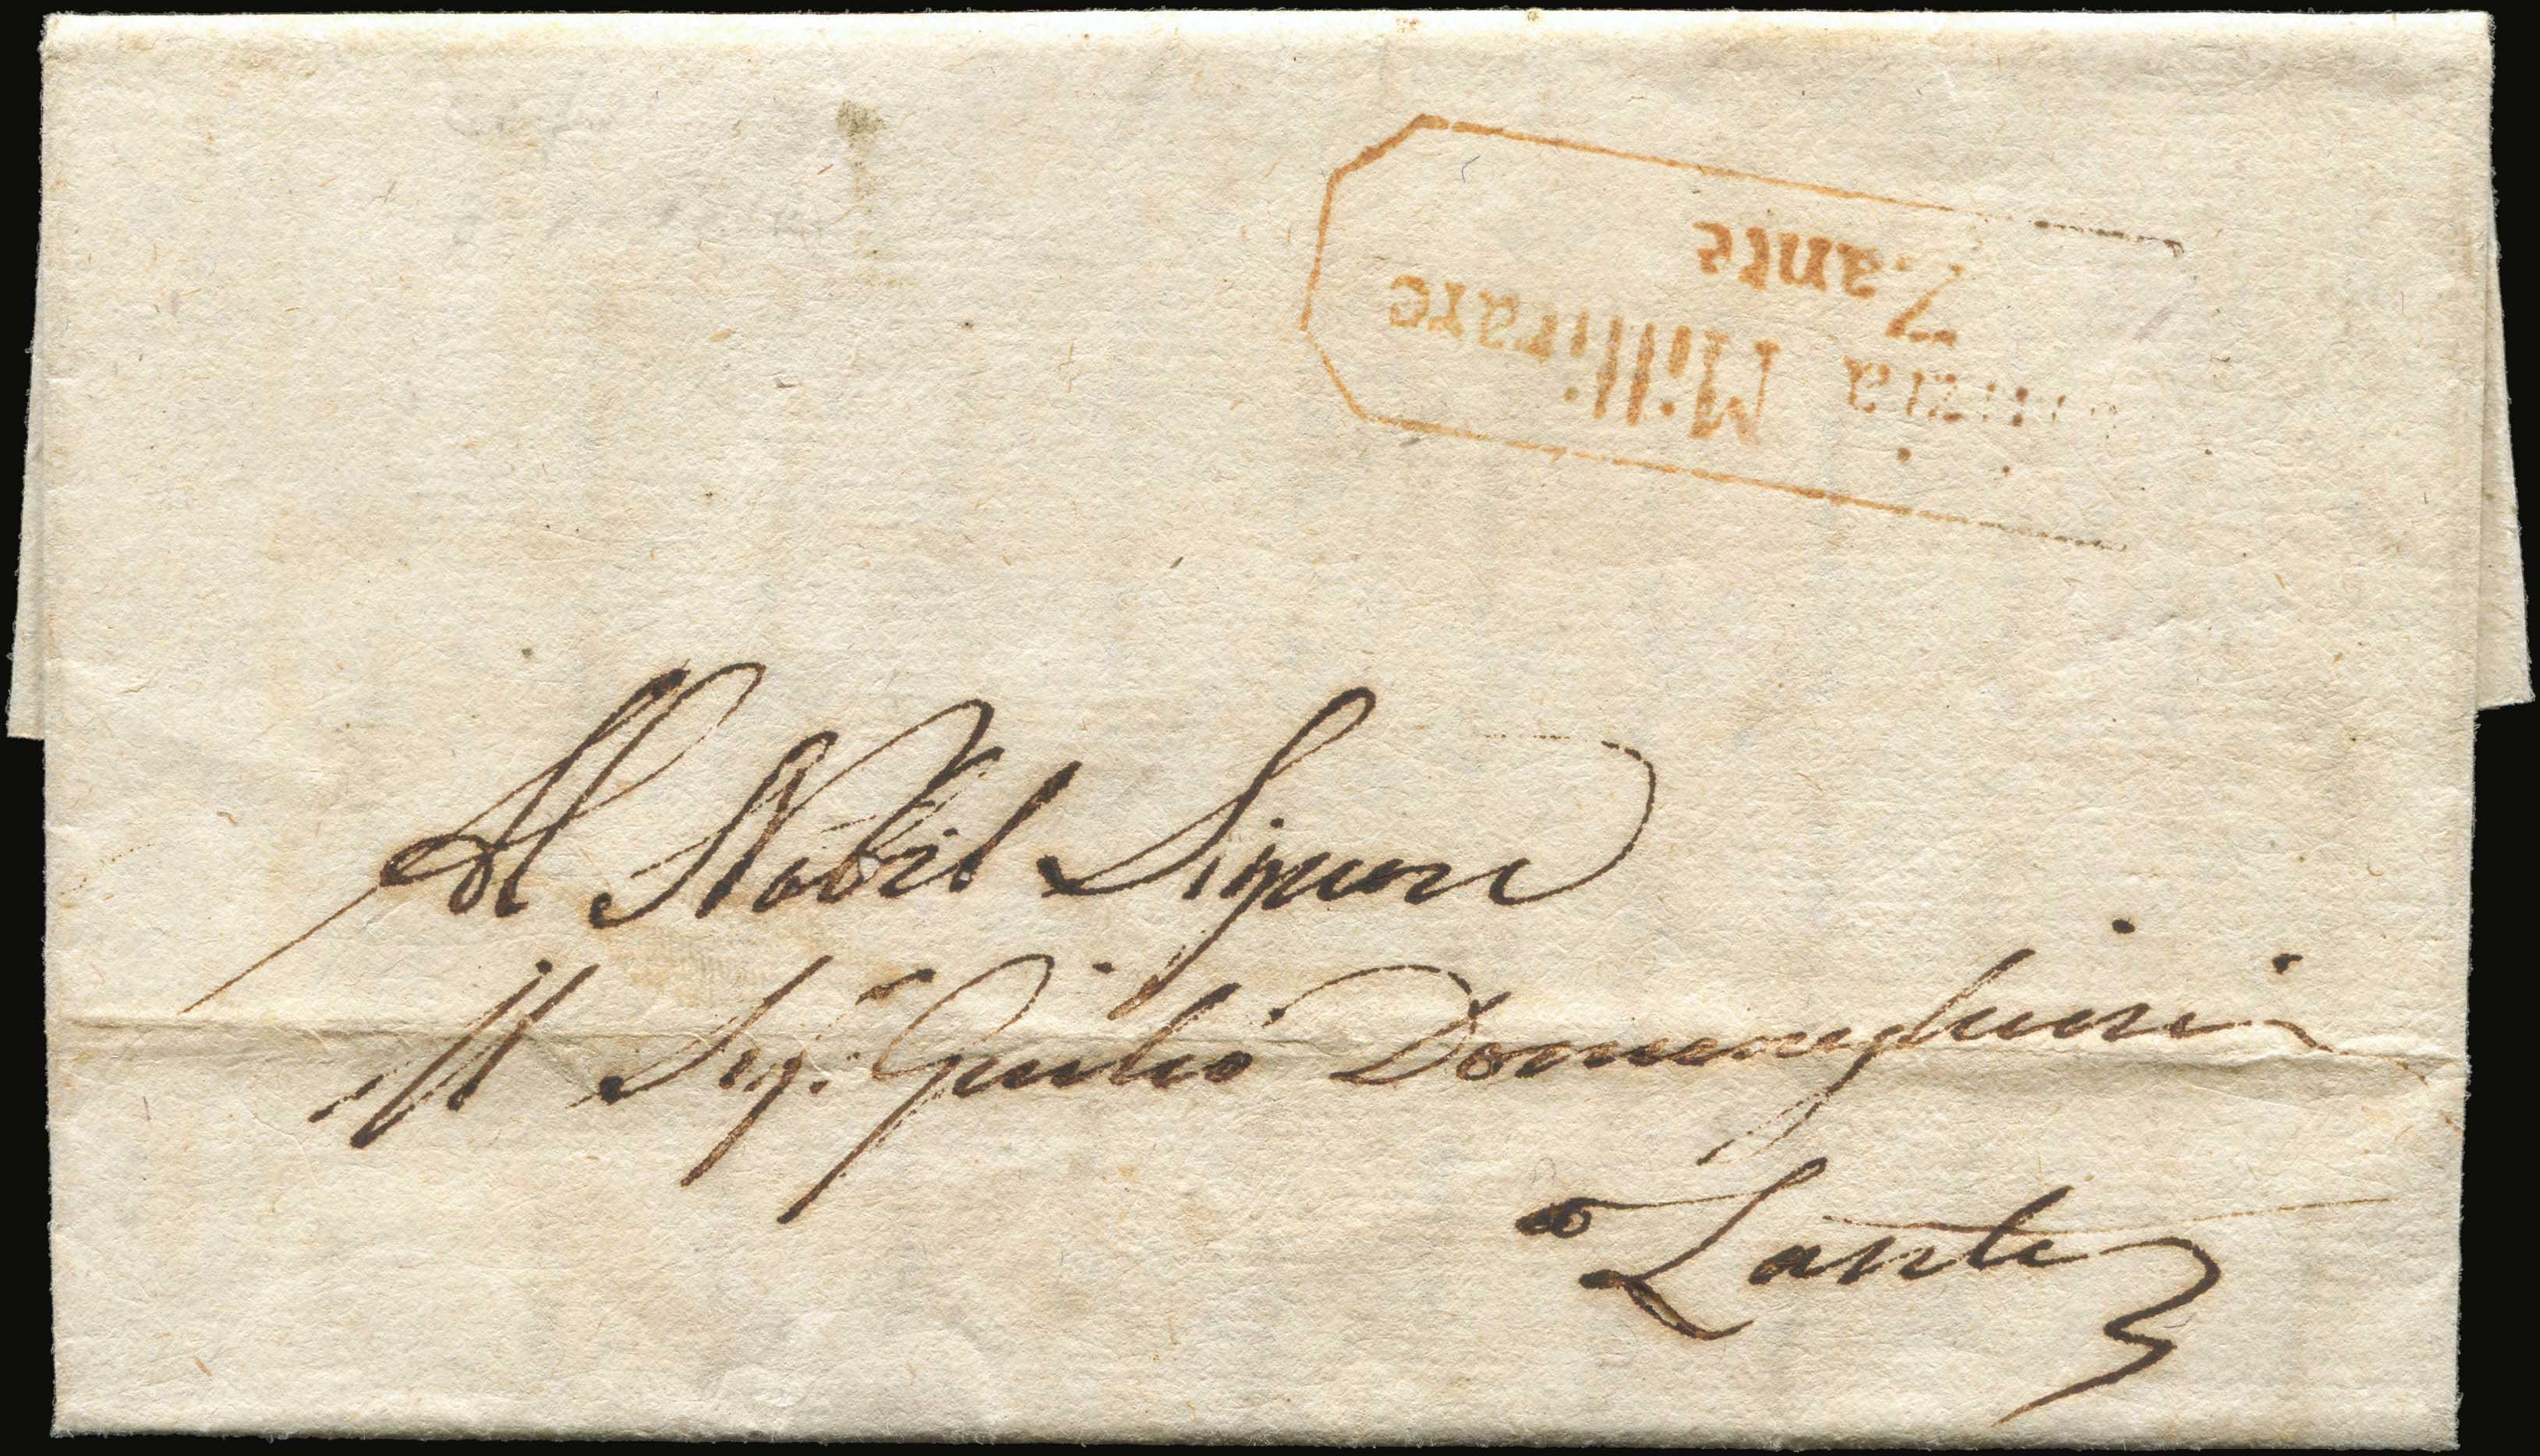 Millitare
Zante
Al Nobil Signore
Il Sigr Giulio Domeneghini
a Zante